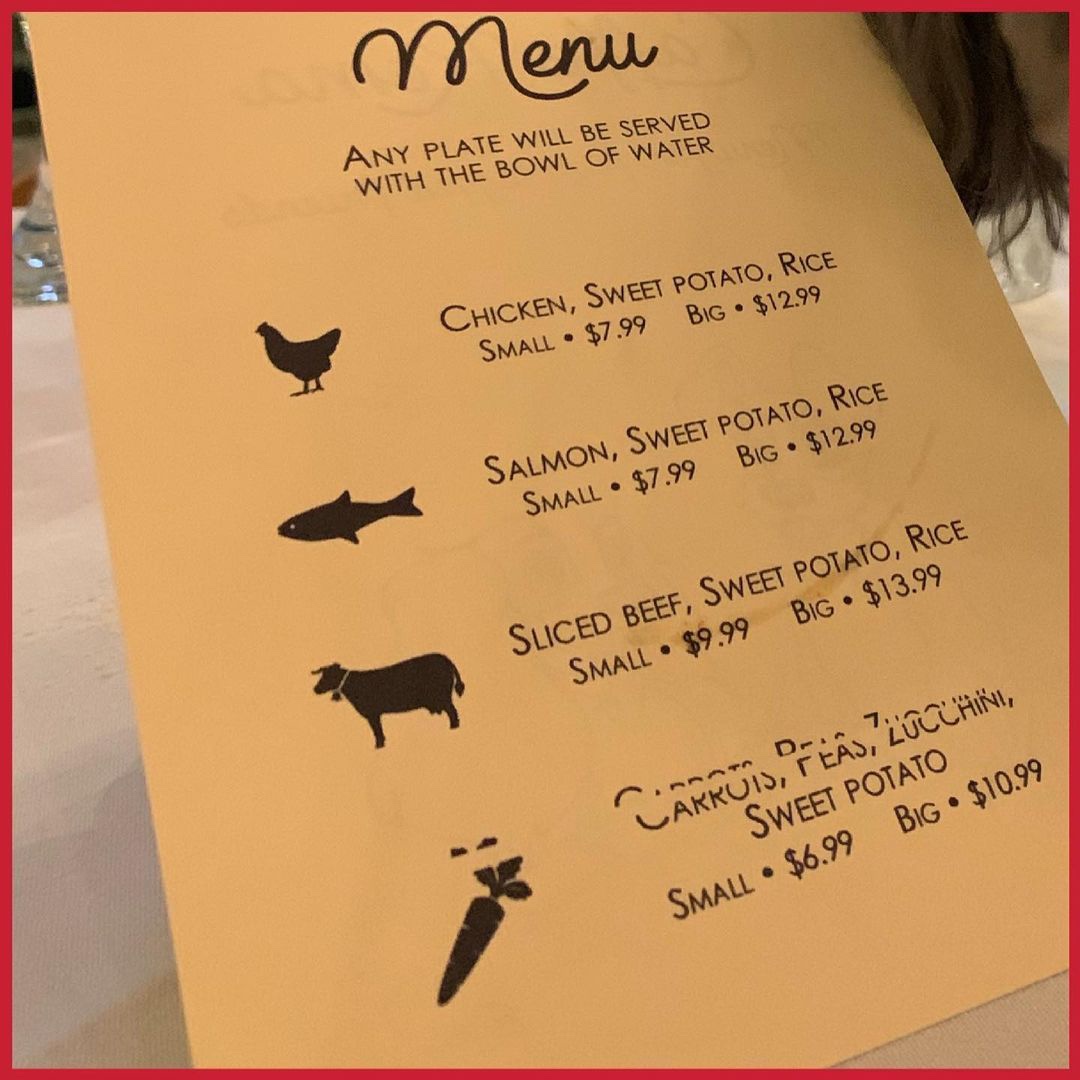 Menu
ANY PLATE WILL BE SERVED
WITH THE BOWL OF WATER
CHICKEN, SWEET POTATO, RICE
SMALL • $7.99 BIG • $12.99
SALMON, SWEET POTATO, RICE
SMALL • $7.99 BIG • $12.99
SLICED BEEF, SWEET POTATO, RICE
SMALL • $9.99 BIG • $13.99
CARROTS, PEAS, ZUCCHINI,
SWEET POTATO
SMALL • $6.99 BIG • $10.99